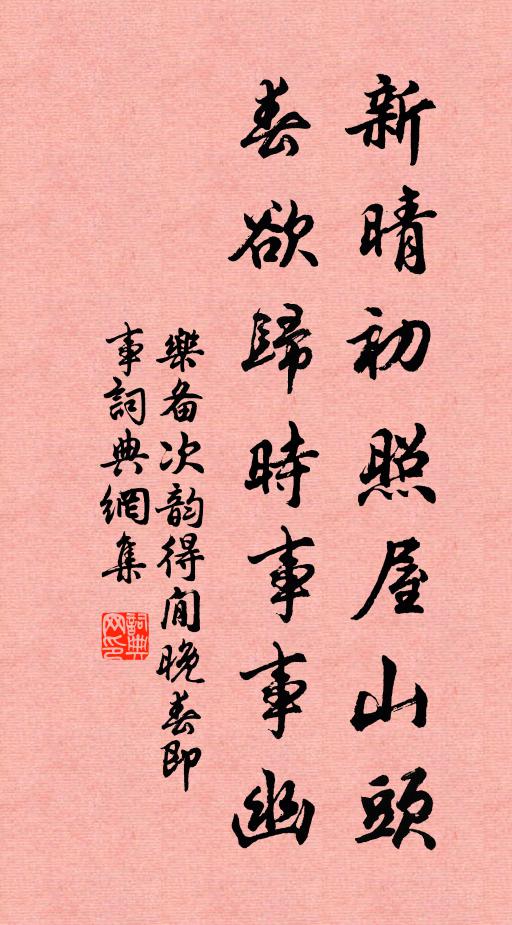 新晴初照屋山頭
春欲歸時事事幽
樂备次韵得闲晚春即
事詞典網集
詞典网印